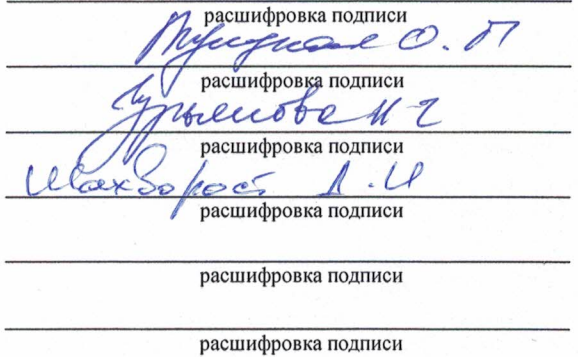 расшифровка подписи
О. П
расшифровка подписи
Н Г
расшифровка подписи
Шахворост Д. И
расшифровка подписи
расшифровка подписи
расшифровка подписи